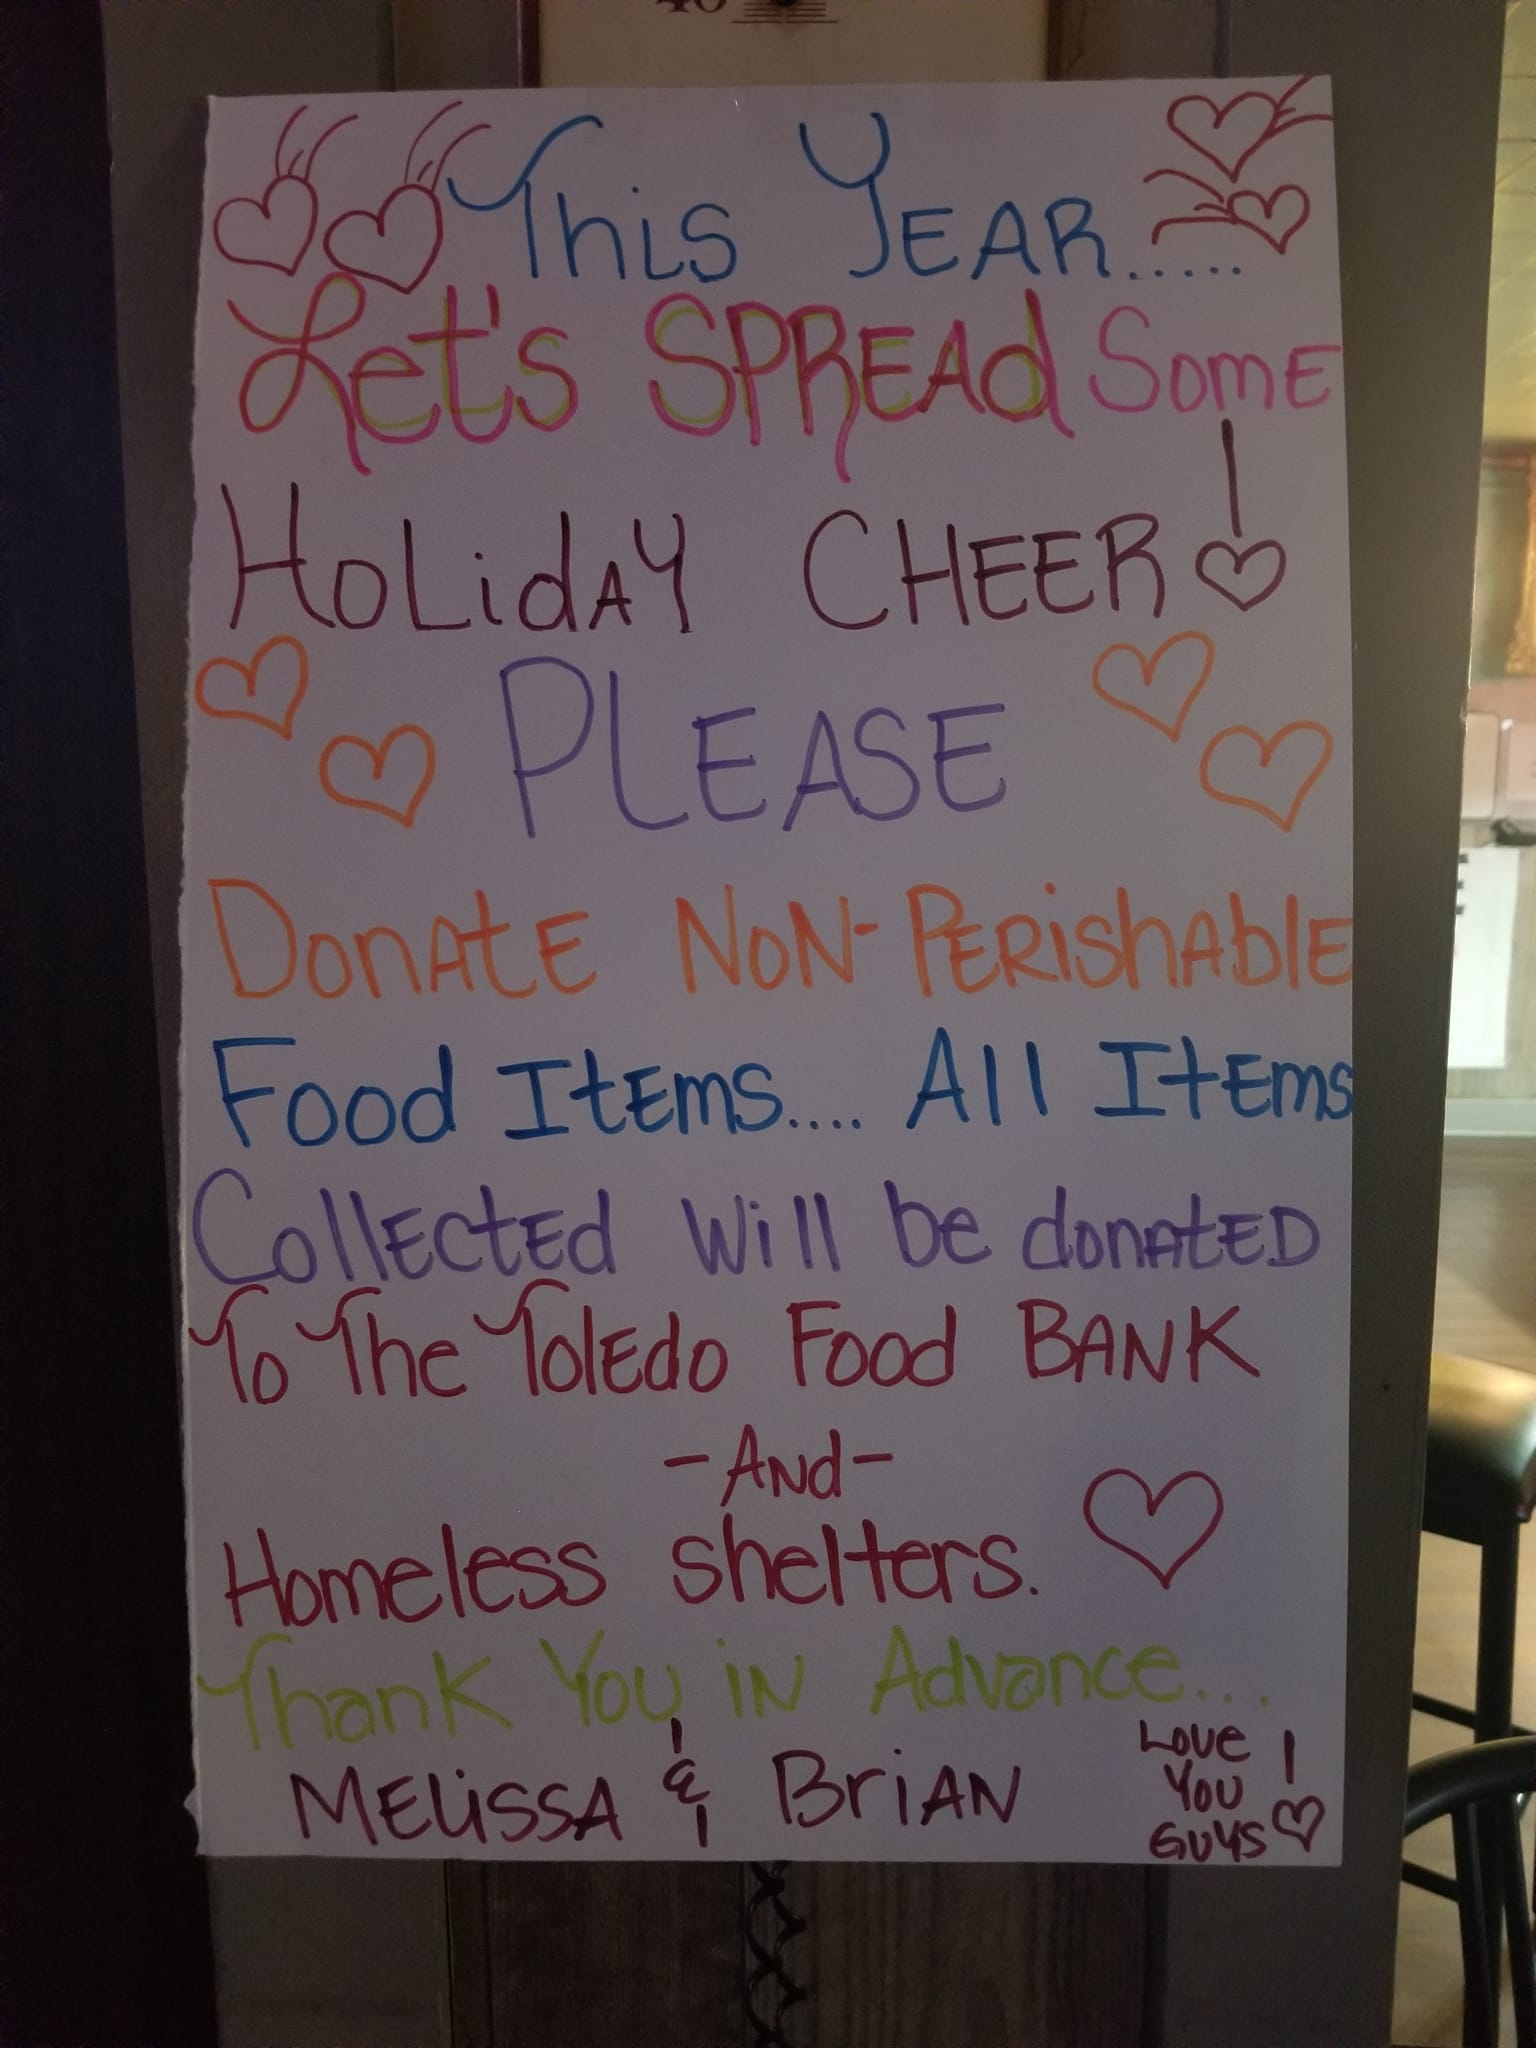 This Year......
Let's Spread Some
Holiday Cheer!
PLEASE
Donate Non-Perishable
Food Items.... All Items
Collected Will be donated
To The Toledo Food BANK
-And-
Homeless shelters.
Thank You in Advance...
Melissa & Brian
Love
You
Guys!